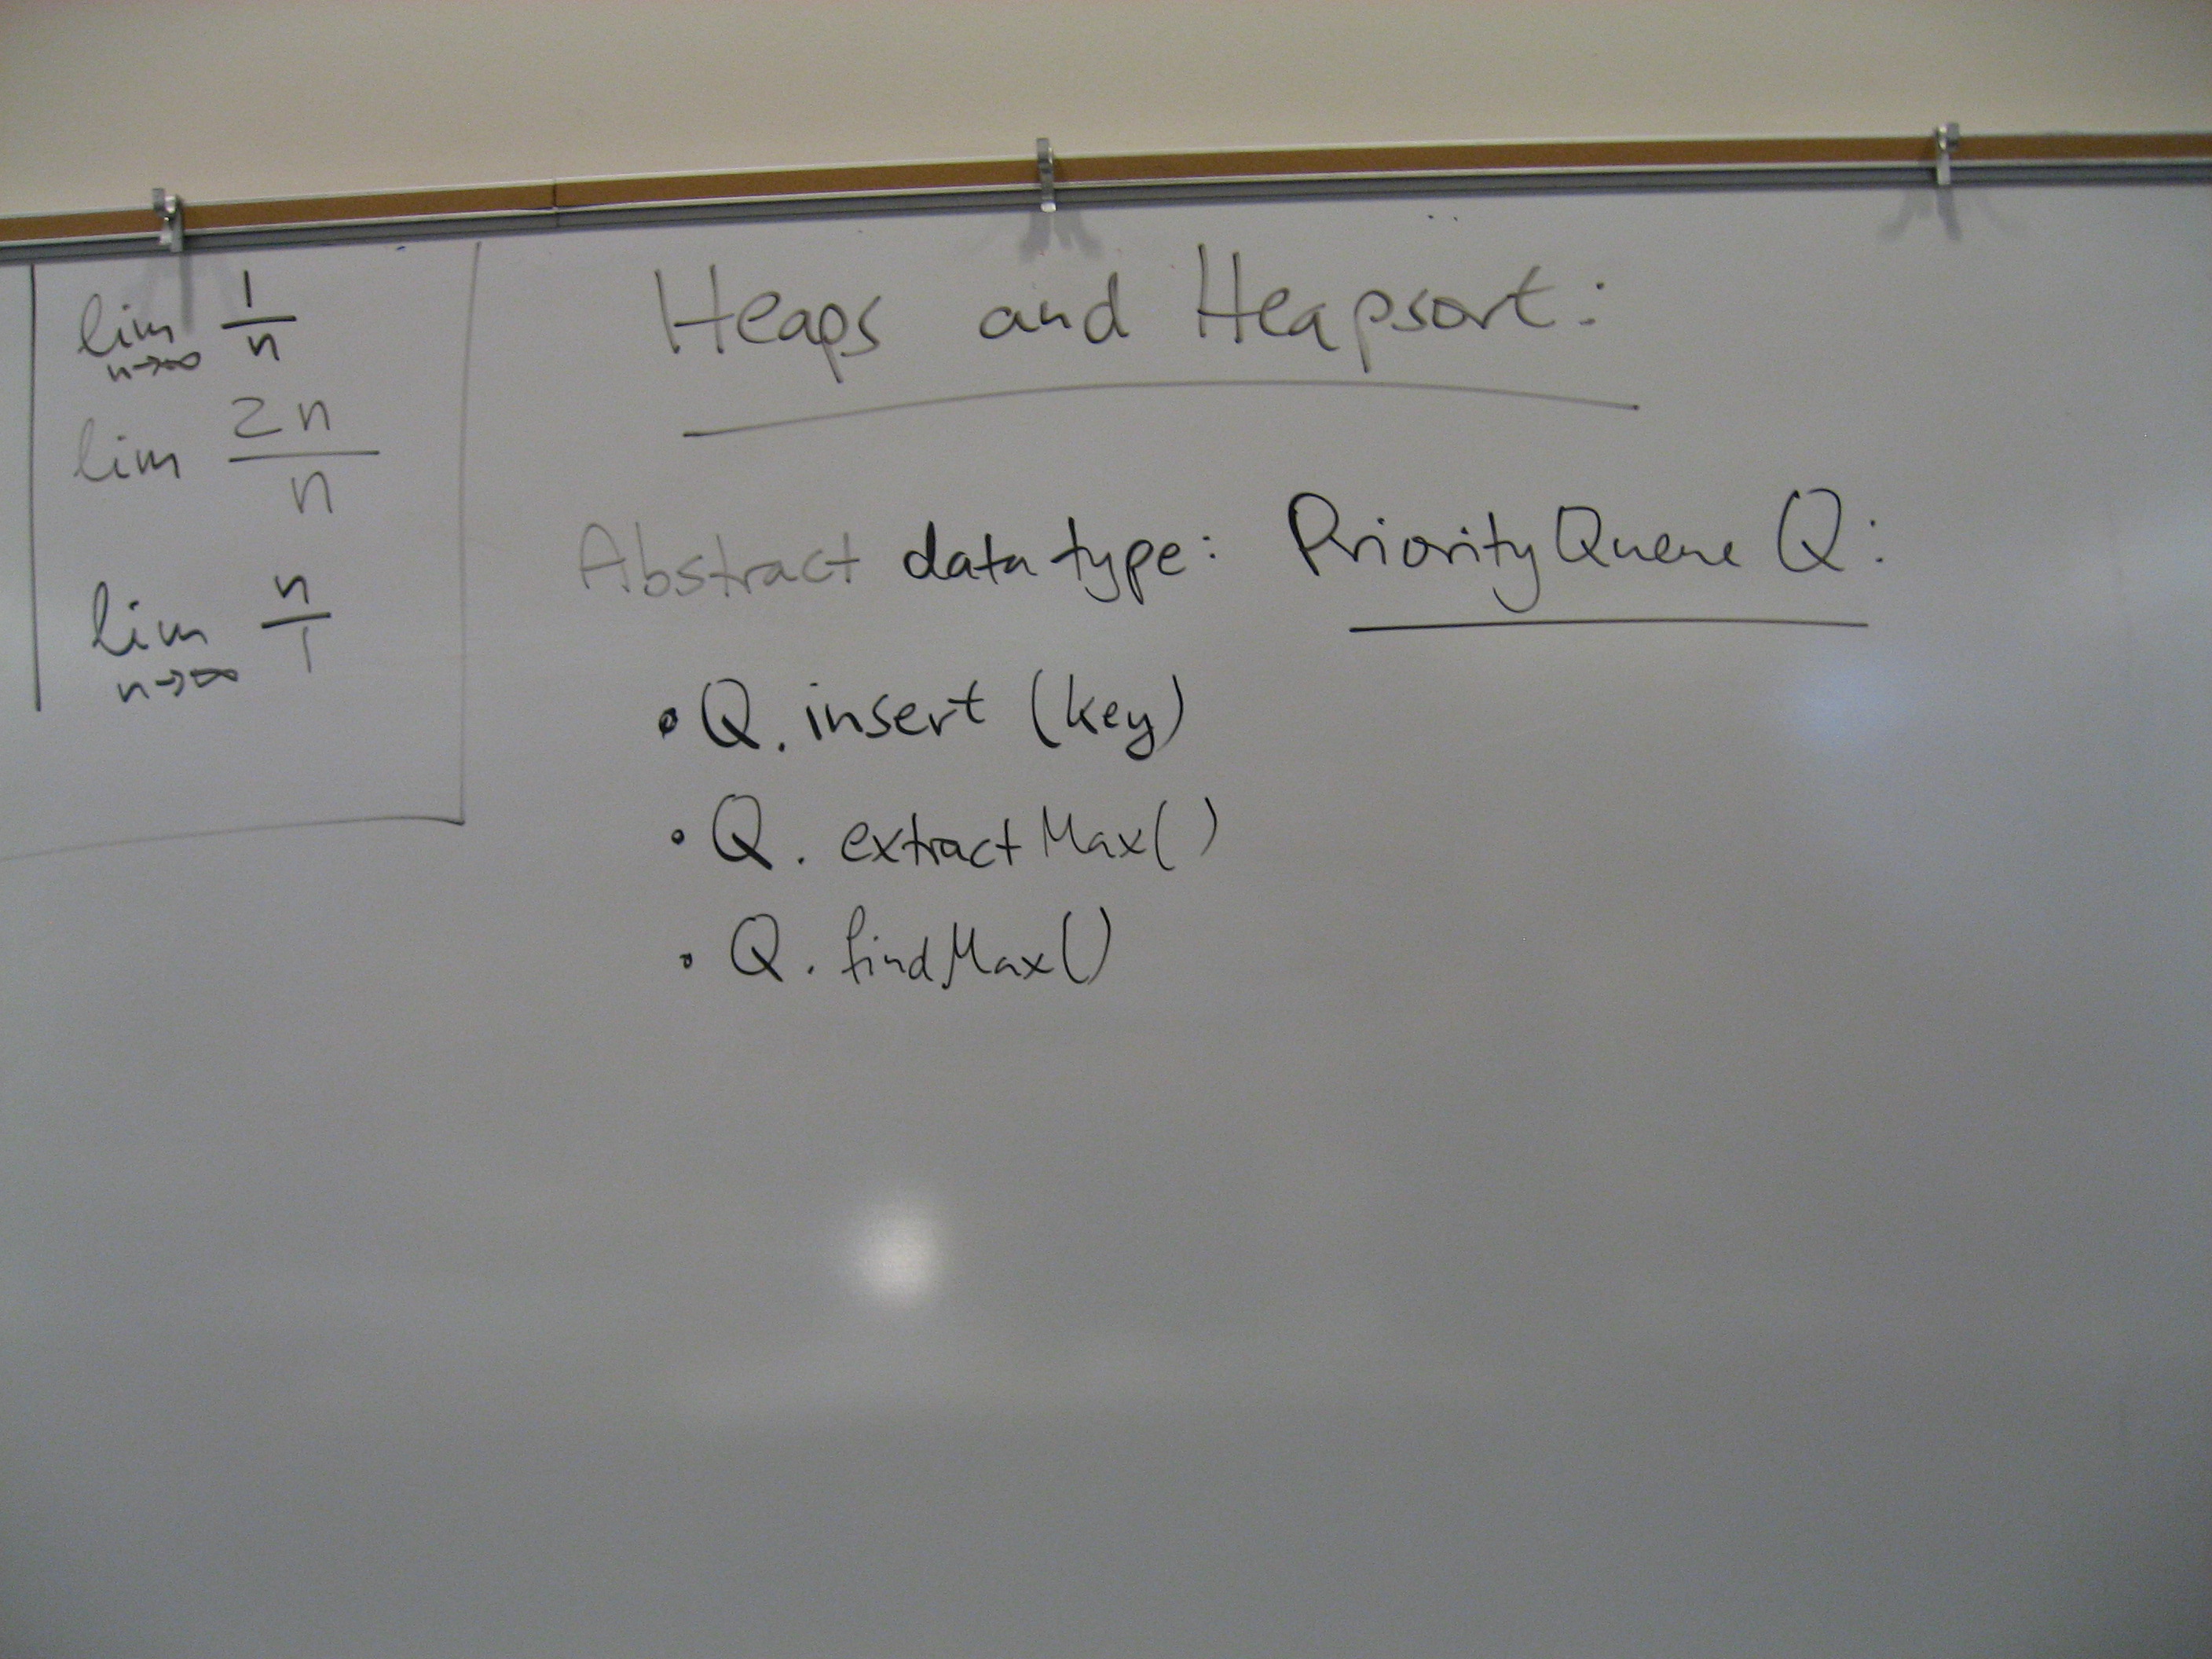 lim n→∞ 1/n
lim 2n/n
lim n→∞ n/1
Heaps and Heapsort:
Abstract data type: PriorityQueue Q:
• Q. insert (key)
• Q. extractMax()
• Q. findMax()